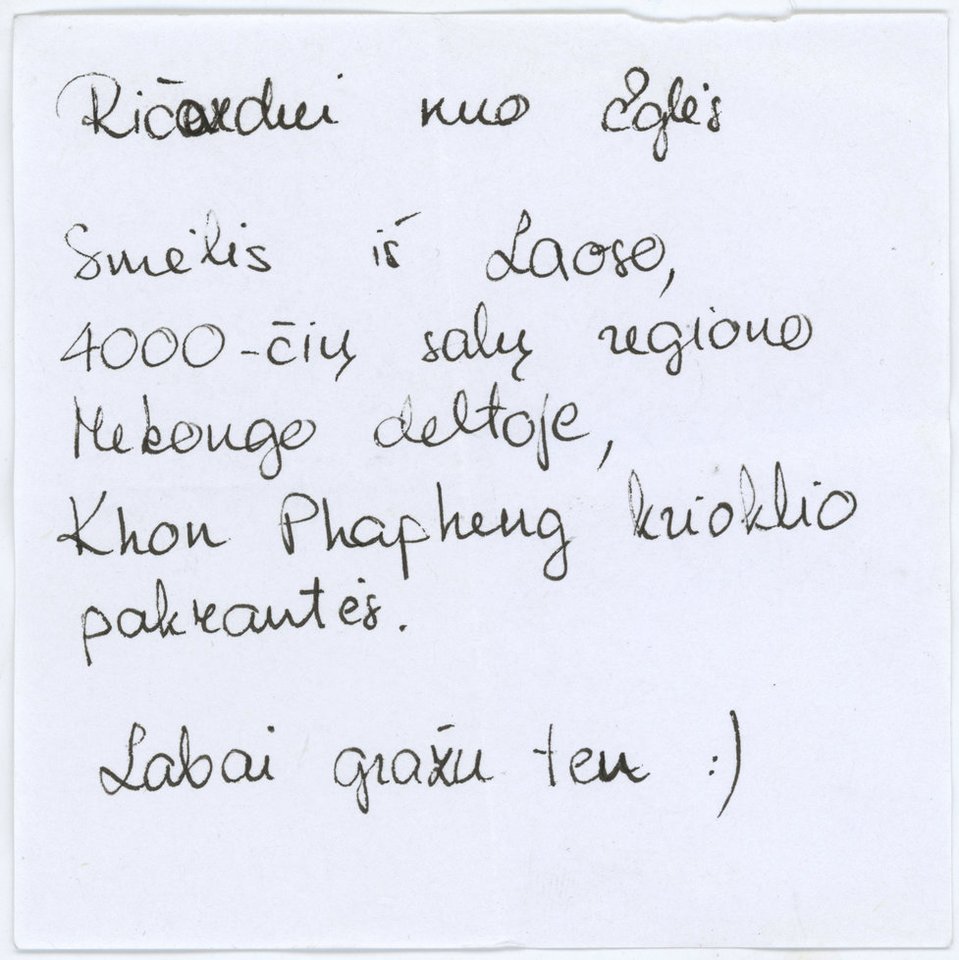 Ričardui nuo Eglės
Smėlis iš Laoso,
4000-čių salų regiono
Mekongo deltoje,
Khon Phapheng krioklio
pakrantės.
Labai gražu ten :)